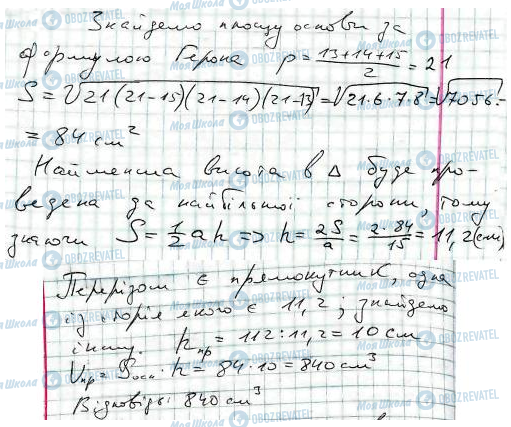 Знайдемо площу основи за
формулою Герона p = (13+14+15)/2 = 21
S = √(21(21-15)(21-14)(21-13)) = √(21·6·7·8) = √7056 =
= 84 см²
Найменша висота в Δ буде про-
ведена до найбільшої сторони, тому
значить S = 1/2 a h => h = 2S/a = (2·84)/15 = 11,2 (см)
Перерізом є прямокутник, одна
із сторін якого є 11,2; знайдемо
іншу. h пр = 112 : 11,2 = 10 см
Vпр = Sосн · h = 84 · 10 = 840 см³
Відповідь: 840 см³